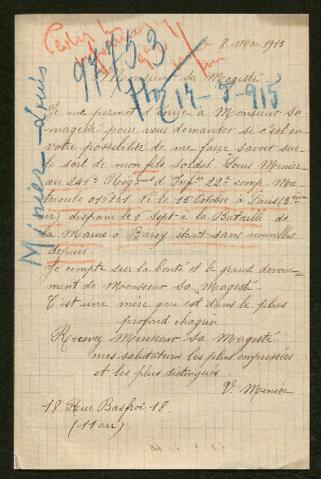 97753
8 Mai 1915
14-8-915
Minier Louis
Monsieur sa Magesté
Je me permet d'écrire à Monsieur sa
magesté pour vous demander si c'est en
votre possibilité de me faire savoir sur
le sort de mon fils Soldat Louis Minier
du 246e d'Inf 22e comp Ma-
tricule né le 15 Octobre à Paris
disparu le 5 Sept à la Bataille de
la Marne à Barcy étant sans nouvelles
depuis.
Je compte sur la bonté et le grand dévoue-
ment de Monsieur Sa Magesté.
C'est une mère qui est dans le plus
profond chagrin
Recevez Monsieur Sa Magesté
mes salutations les plus empressées
et les plus distingués.
Ve Minier
18 Rue Basfroi 18.
(11 arr)